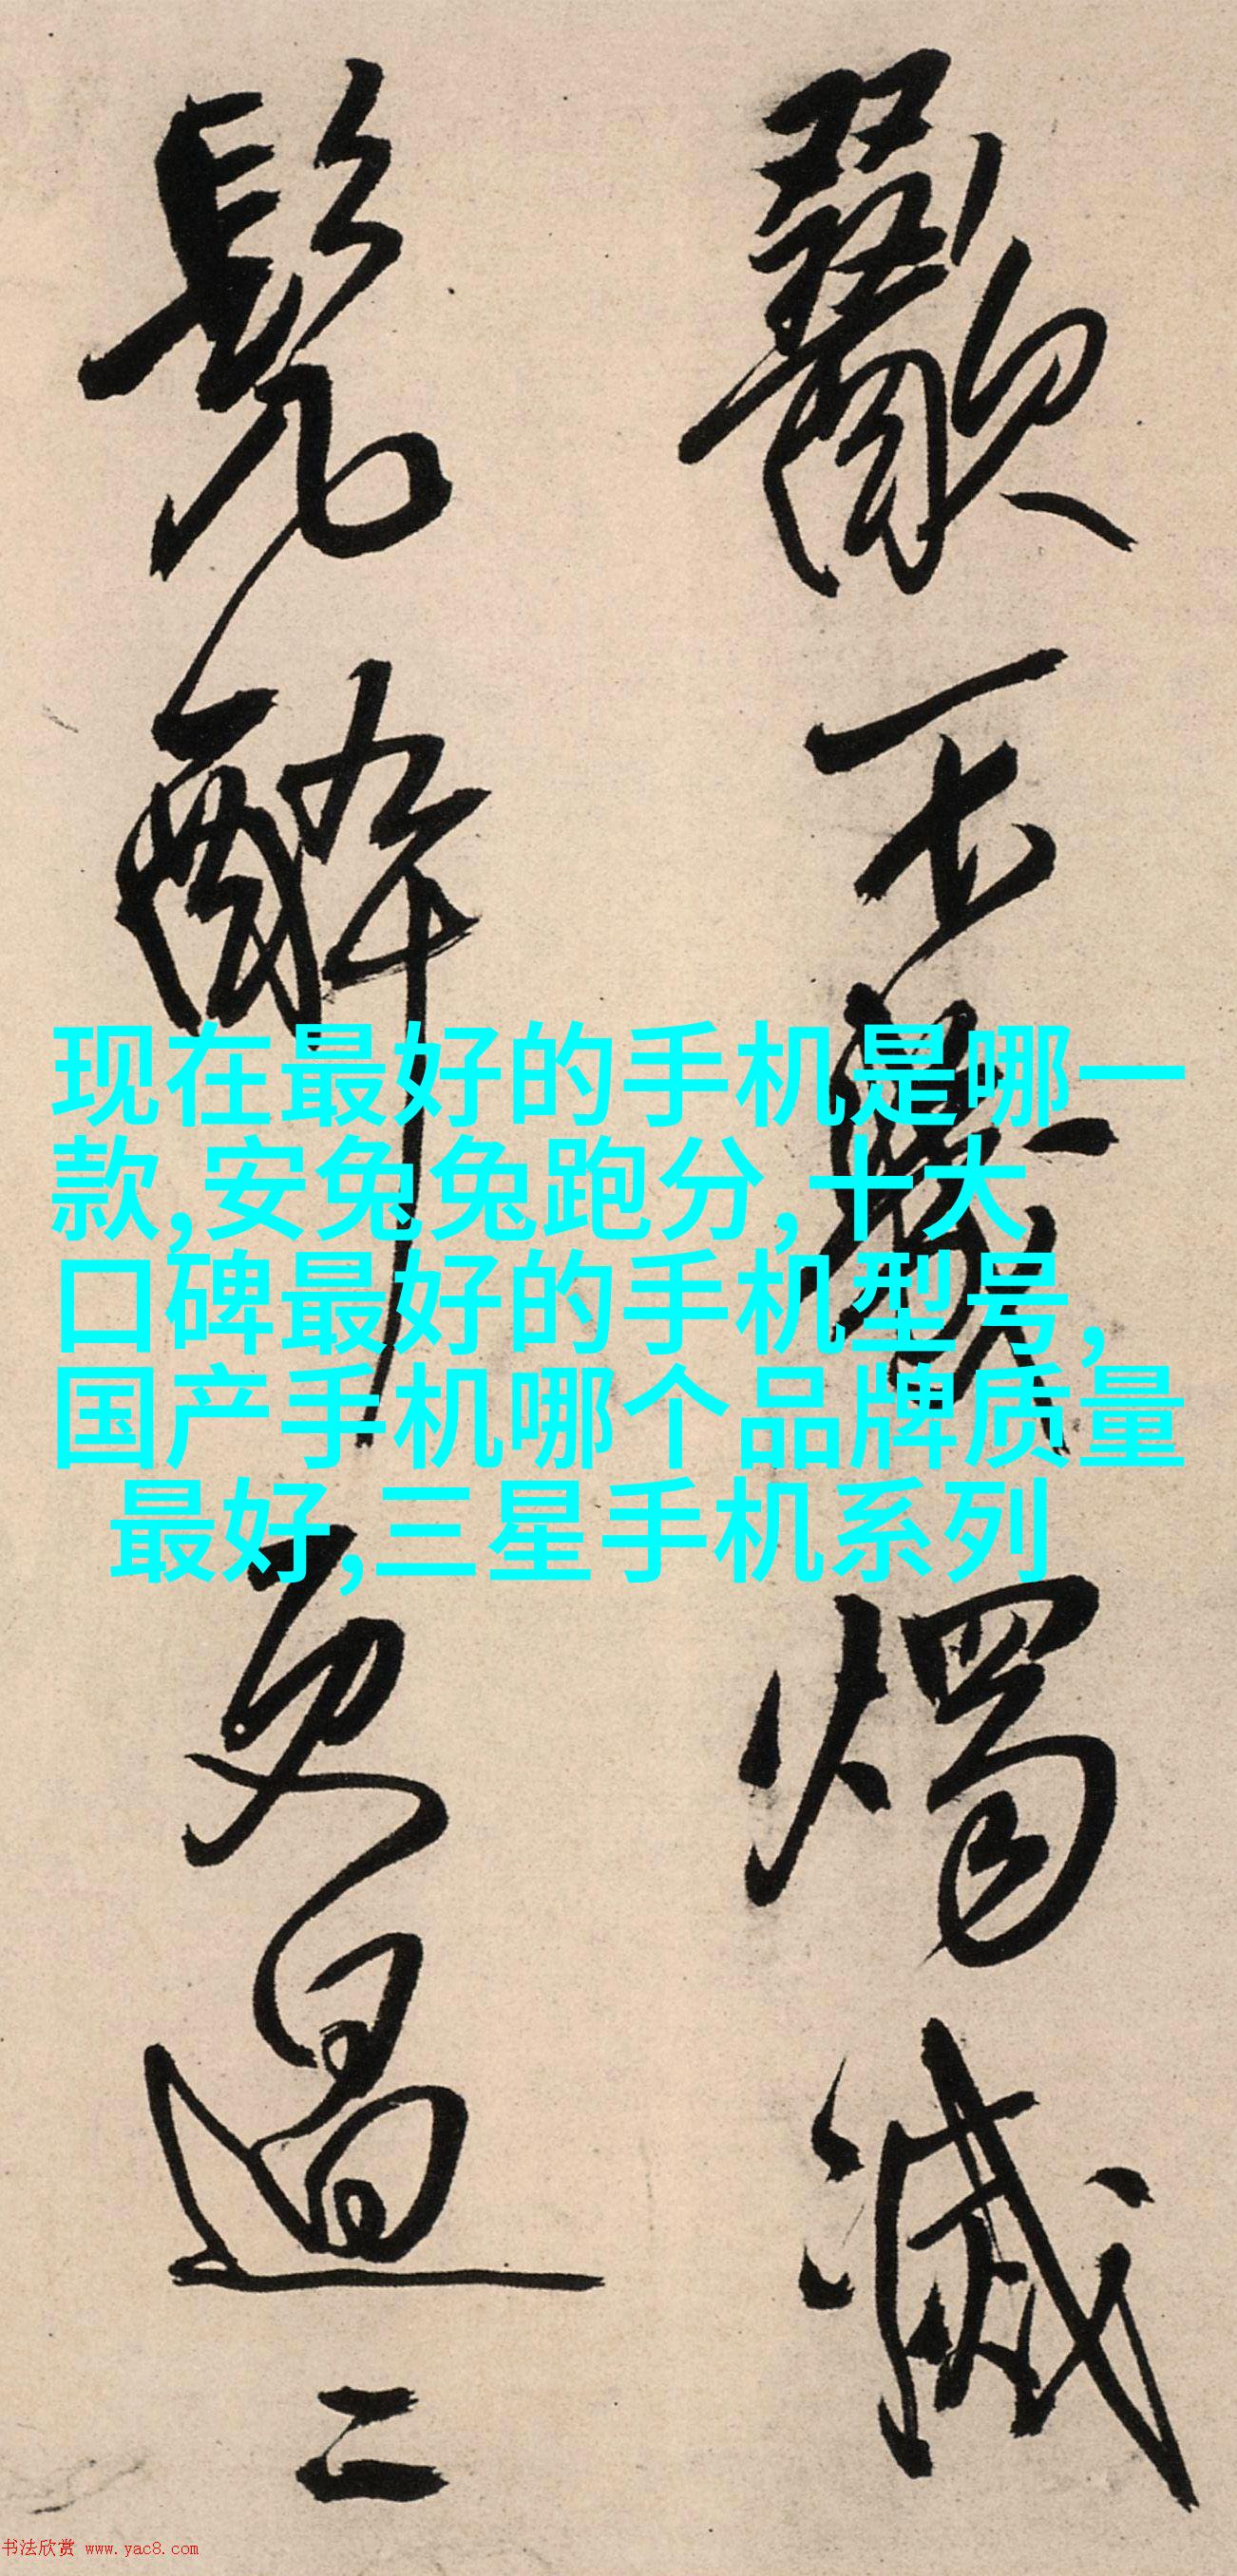 不燭滅
髡醉更過二
现在最好的手机是哪一
款,安兔兔跑分,十大
口碑最好的手机型号,
国产手机哪个品牌质量
最好,三星手机系列
书法欣赏 www.yac8.com